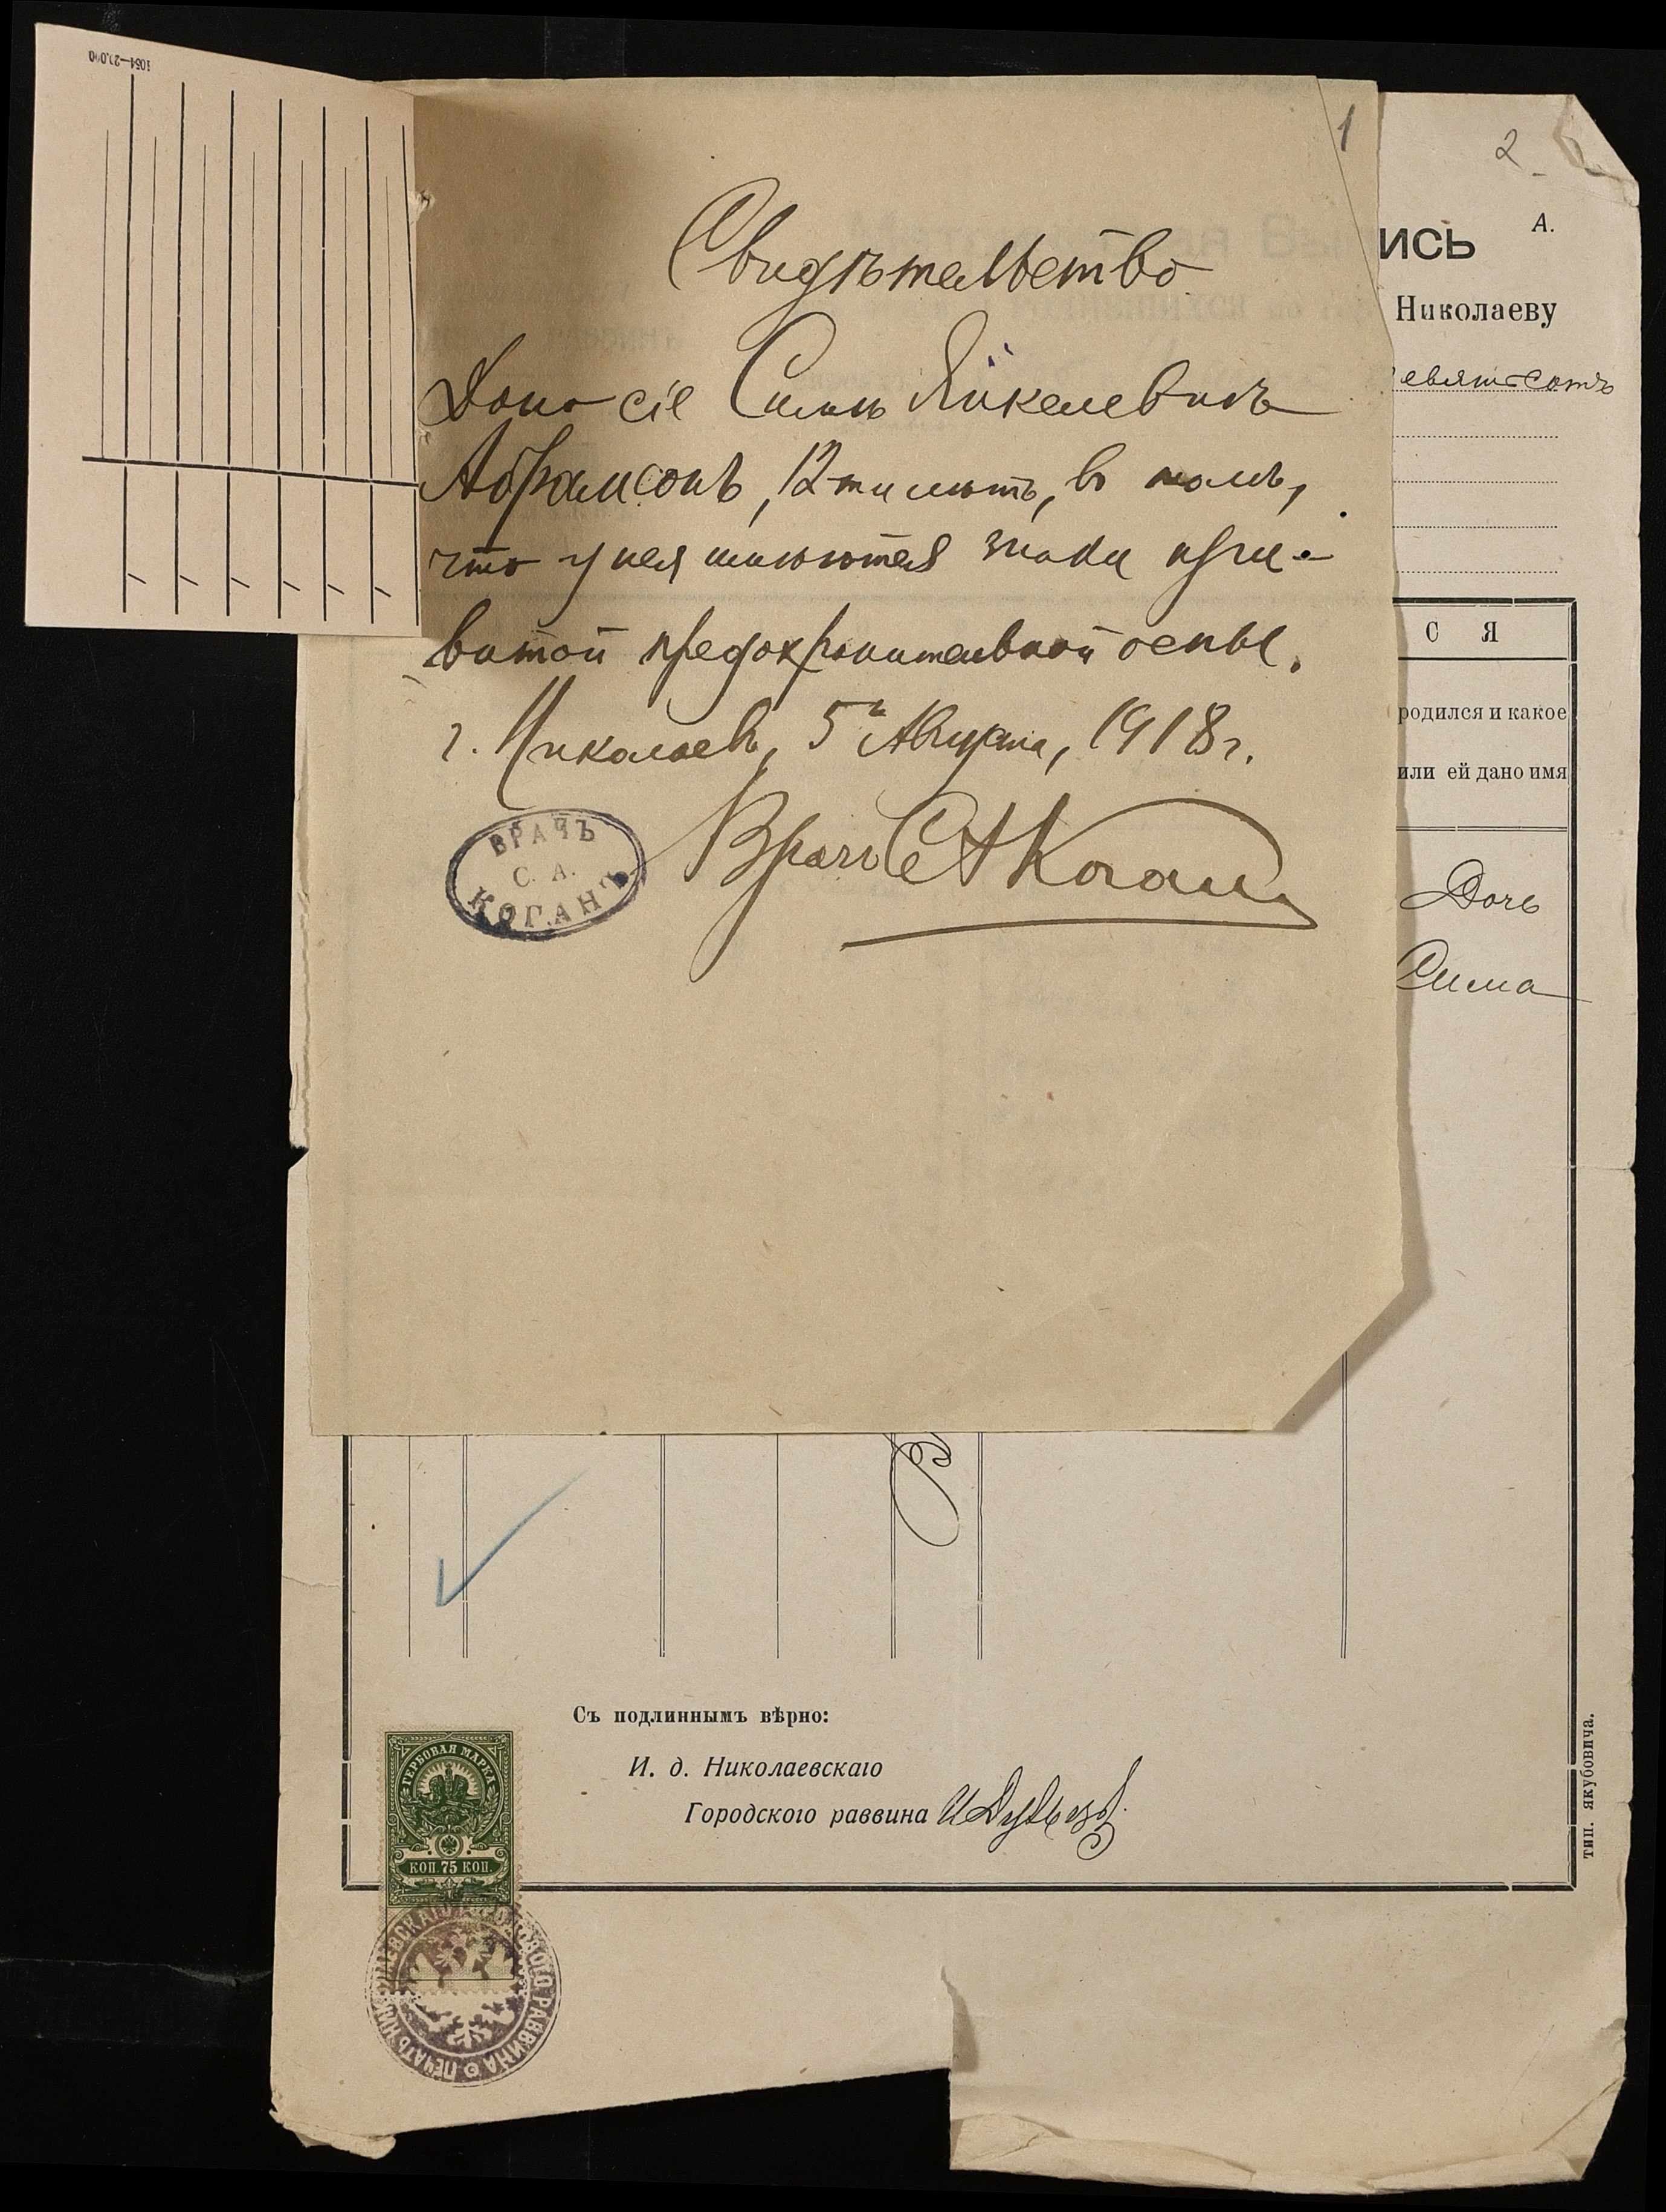 1054—20.000
1
Свидѣтельство
Дано сіе Симѣ Янкелевнѣ
Абрамсонъ, 12ти лѣтъ, въ томъ,
что у нея имѣются знаки при-
витой предохранительной оспы.
г. Николаевъ, 5го Августа, 1918 г.
ВРАЧЪ
С. А.
КОГАНЪ
Врачъ С А Коганъ
2
А.
ИСЬ
Николаеву
евятьсотъ
С Я
родился и какое
или ей дано имя
Дочь
Сима
Съ подлиннымъ вѣрно:
И. д. Николаевскаго
Городского раввина
ГЕРБОВАЯ МАРКА
КОП. 75 КОП.
ПЕЧАТЬ НИКОЛАЕВСКАГО ГОРОДСКОВОГО РАВВИНА
тип. якубовича.